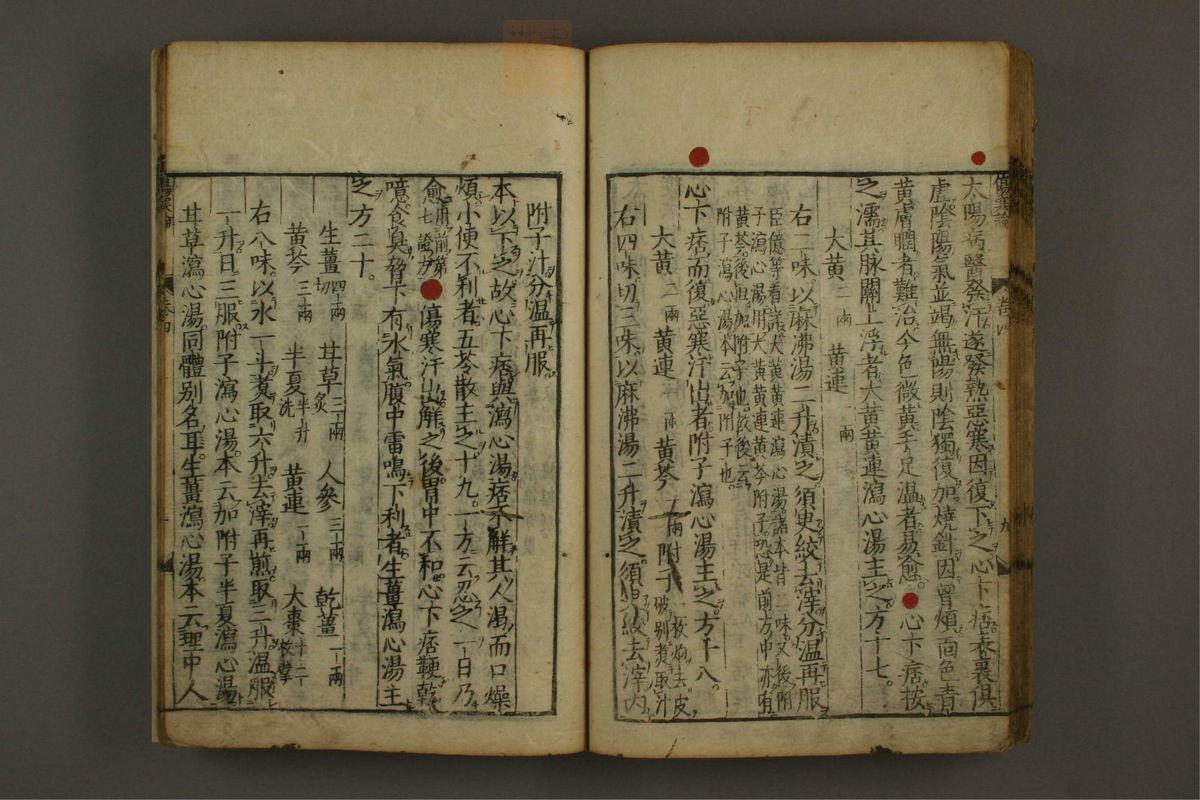 太陽病醫發汗遂發熱惡寒因復下之心下痞表裏俱
虛陰陽氣並竭無陽則陰獨復加燒針因胷煩面色青
黃膚瞤者難治今色微黃手足温者易愈。心下痞按
之濡其脉關上浮者大黃黃連瀉心湯主之方十七。
大黃二兩 黃連一兩
右二味以麻沸湯二升漬之須㬰絞去滓分温再服
臣億等看詳大黃黃連瀉心湯諸本皆二味又後附
子瀉心湯用大黃黃連黃芩附子恐是前方中亦有
黃芩後但加附子也故後云
附子瀉心湯本云加附子也。
心下痞而復惡寒汗出者附子瀉心湯主之方十八。
大黃二兩 黃連一兩 黃芩一兩 附子一枚炮去皮
破别煮取汁
右四味切三味以麻沸湯二升漬之須㬰絞去滓内
附子汁分温再服
本以下之故心下痞與瀉心湯痞不解其人渴而口燥
煩小便不利者五苓散主之十九。一方云忍之一日乃
愈用前第
七證方 傷寒汗出解之後胃中不和心下痞鞕乾
噫食臭脅下有水氣腹中雷鳴下利者生薑瀉心湯主
之方二十。
生薑四兩切 甘草三兩炙 人參三兩 乾薑一兩
黃芩三兩 半夏半升洗 黃連一兩 大棗十二枚擘
右八味以水一斗煮取六升去滓再煎取三升温服
一升日三服附子瀉心湯本云加附子半夏瀉心湯
甘草瀉心湯同體别名耳生薑瀉心湯本云理中人
傷寒論 卷四 九
傷寒論 卷四